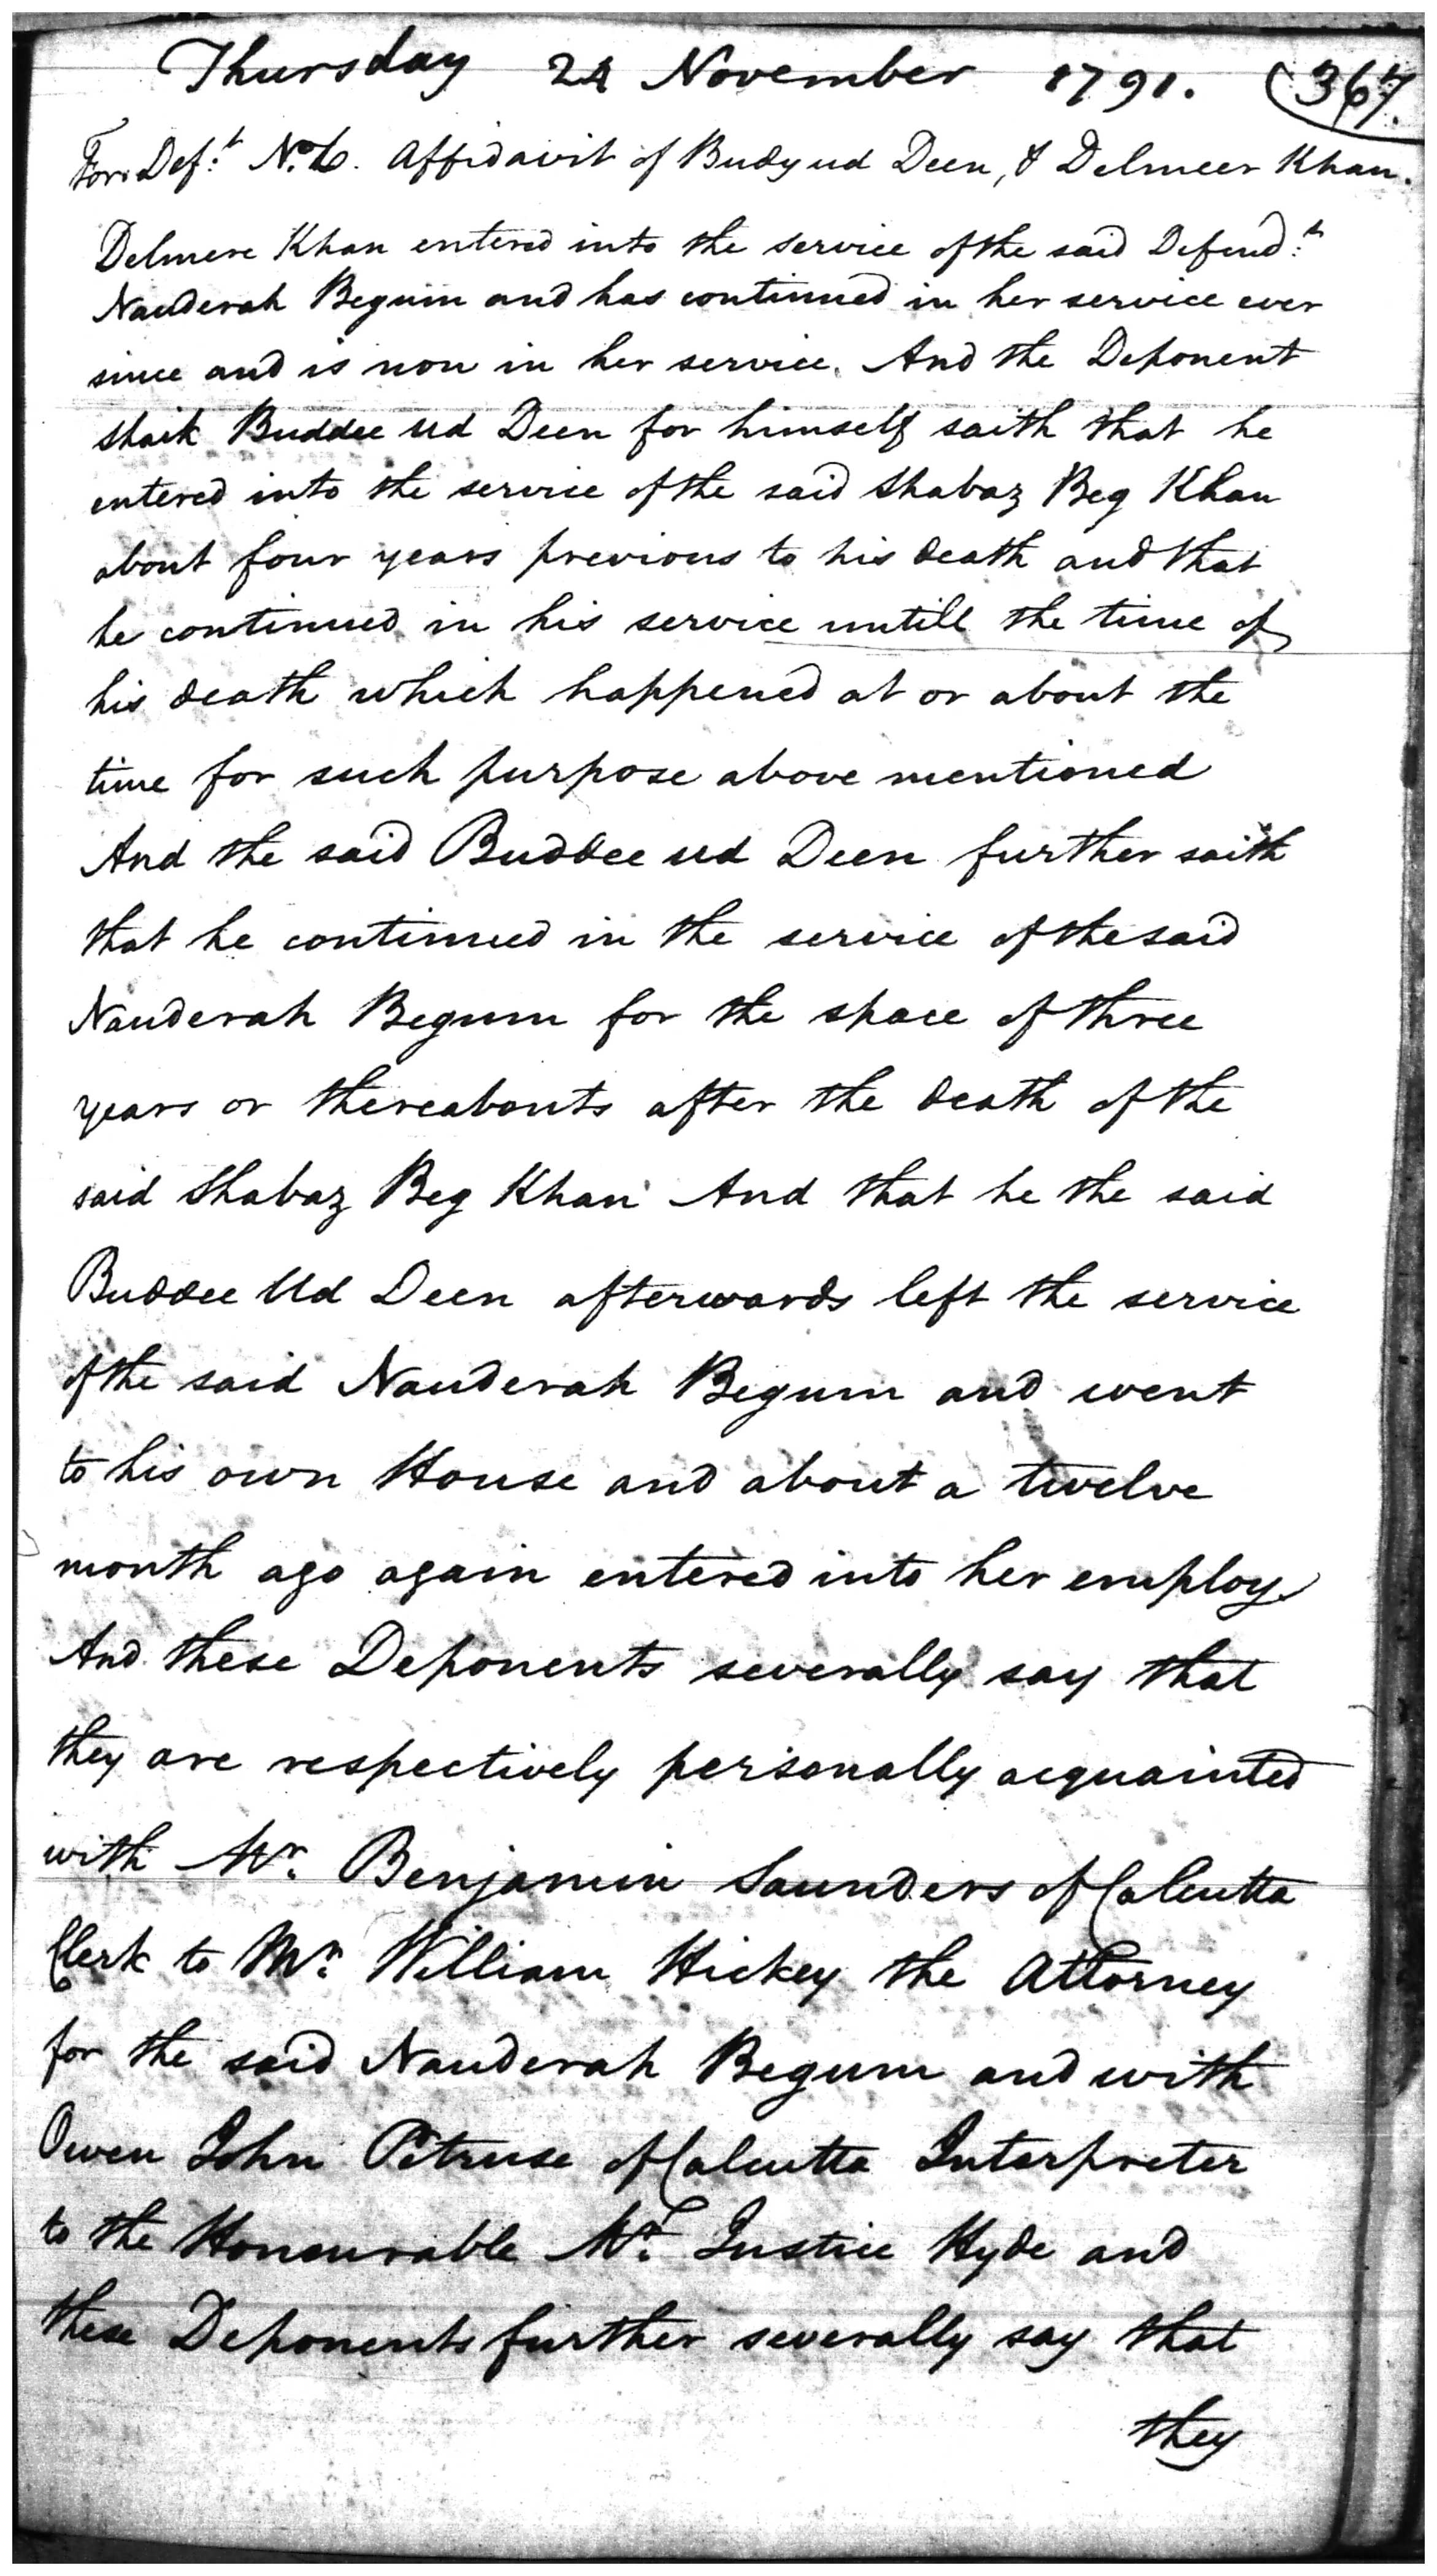 Thursday 24 November 1791. (367.
For Def.t No. 6. Affidavit of Budyud Deen, & Delmeer Khan.
Delmere Khan entered into the service of the said Defend.t
Nauderah Begum and has continued in her service ever
since and is now in her service. And the Deponent
Shaik Buddee ud Deen for himself saith that he
entered into the service of the said Shabaz Beg Khan
about four years previous to his death and that
he continued in his service untill the time of
his death which happened at or about the
time for such purpose above mentioned
And the said Buddee ud Deen further saith
that he continued in the service of the said
Nauderah Begum for the space of three
years or thereabouts after the death of the
said Shabaz Beg Khan And that he the said
Buddee Ud Deen afterwards left the service
of the said Nauderah Begum and went
to his own House and about a twelve
month ago again entered into her employ
And these Deponents severally say that
they are respectively personally acquainted
with Mr. Benjamin Saunders of Calcutta
Clerk to Mr. William Hickey the Attorney
for the said Nauderah Begum and with
Owen John Petruse of Calcutta Interpreter
to the Honourable Mr. Justice Hyde and
these Deponents further severally say that
they